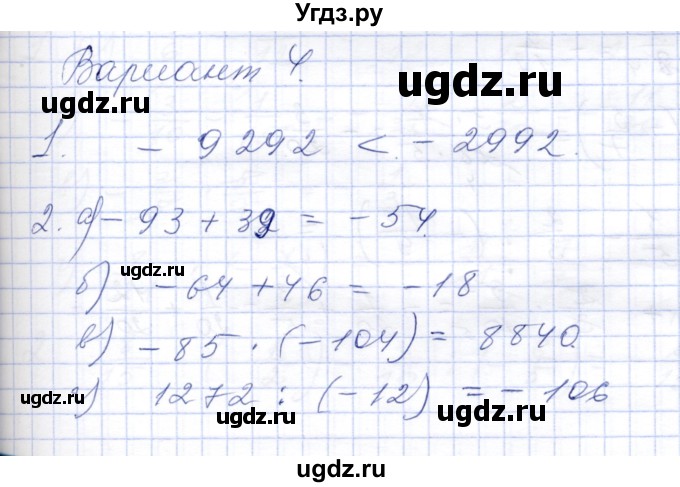 Угдз.ру
Вариант 4.
ugdz.ru
ugdz.ru
1. - 9292 < - 2992.
ugdz.ru
2. а) - 93 + 39 = - 54.
ugdz.ru
б) - 64 + 46 = - 18
ugdz.ru
в) - 85 · (- 104) = 8840.
ugdz.ru
г) 1272 : (- 12) = - 106
ugdz.ru
ugdz.ru
ugdz.ru